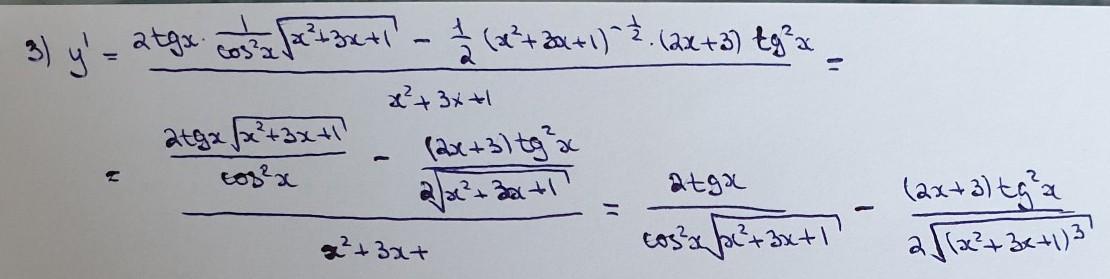 3) y' = \frac{2tgx \cdot \frac{1}{cos^2x} \sqrt{x^2+3x+1} - \frac{1}{2} (x^2+3x+1)^{-\frac{1}{2}} \cdot (2x+3) tg^2x}{x^2+3x+1} =
= \frac{\frac{2tgx \sqrt{x^2+3x+1}}{cos^2x} - \frac{(2x+3) tg^2x}{2\sqrt{x^2+3x+1}}}{x^2+3x+} = \frac{2tgx}{cos^2x \sqrt{x^2+3x+1}} - \frac{(2x+3) tg^2x}{2\sqrt{(x^2+3x+1)^3}}